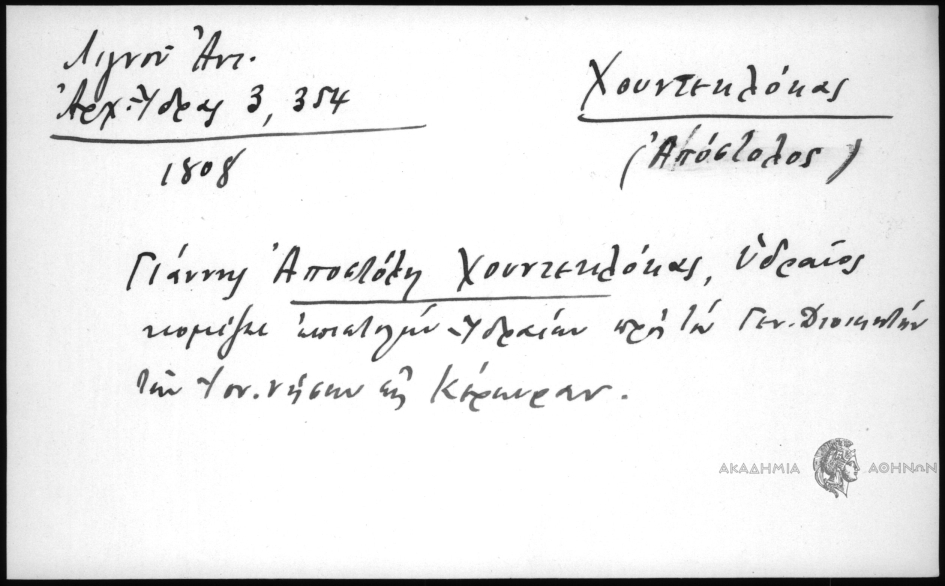 Λιγνοῦ Ἀντ.
Ἀρχ. Ὕδρας 3, 354
1808
Χουντεκλόκας
(Ἀπόστολος)
Γιάννης Ἀποστόλη Χουντεκλόκας, Ὑδραῖος
κομίζει ἐπιστολήν Ὑδραίων πρός τόν Γεν. Διοικητήν
τῶν Ἰον. νήσων εἰς Κέρκυραν.
ΑΚΑΔΗΜΙΑ ΑΘΗΝΩΝ